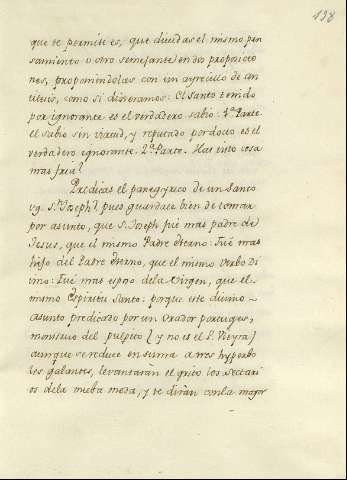 138
que te permite es, que dividas el mismo pen
samiento u otro semejante en dos proposicio
nes, proponiendolas con un ayrecillo de an
titesis, como si dixeramos: El Santo tenido
por ignorante es el verdadero sabio: 1ª. Parte
el sabio sin virtud, y reputado por docto es el
verdadero ignorante. 2ª. Parte. Has visto cosa
mas fria?
Predicas el panegyrico de un Santo
vg. S. Joseph? pues guardate bien de tomar
por asunto, que S. Joseph fue mas padre de
Jesus, que el mismo Padre eterno: Fue mas
hijo del Padre eterno, que el mismo Verbo Di
vino: Fue mas esposo de la Virgen, que el
mismo Espiritu Santo: porque este divino
asunto predicado por un orador portugues,
monstruo del pulpito (y no es el P. Vieyra)
aunque se reduce en suma a tres hyperbo
les galantes, levantaran el grito los sectari
os dela nueba moda, y te diràn con la mayor